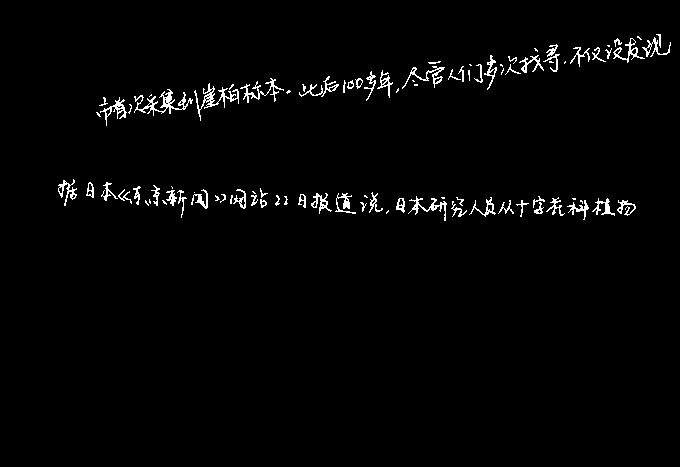 市首次采集到崖柏标本。此后100多年,尽管人们多次找寻,不仅没发现
据日本《东京新闻》网站22日报道说,日本研究人员从十字花科植物